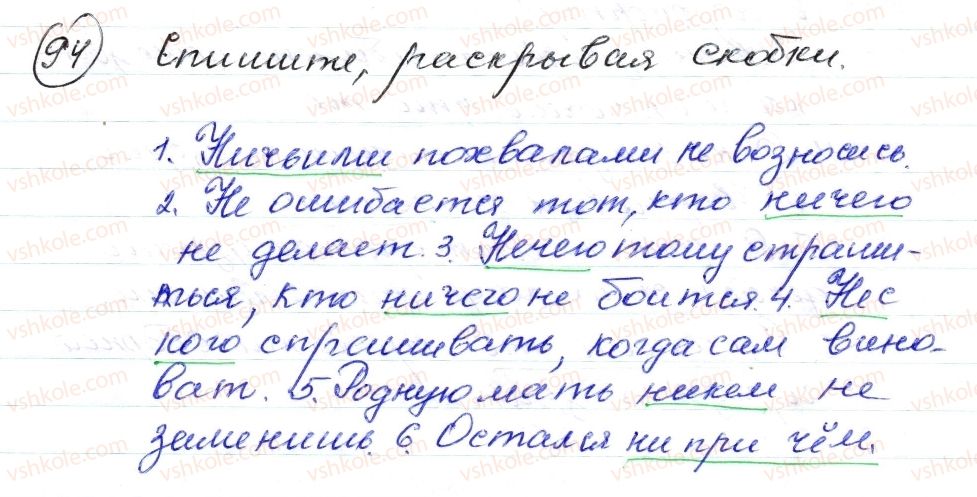 94 Спишите, раскрывая скобки.
1. Ничьими похвалами не возносись.
2. Не ошибается тот, кто ничего
не делает. 3. Нечего тому страши-
ться, кто ничего не боится. 4. Не с
кого спрашивать, когда сам вино-
ват. 5. Родную мать никем не
заменишь. 6. Остался ни при чём.